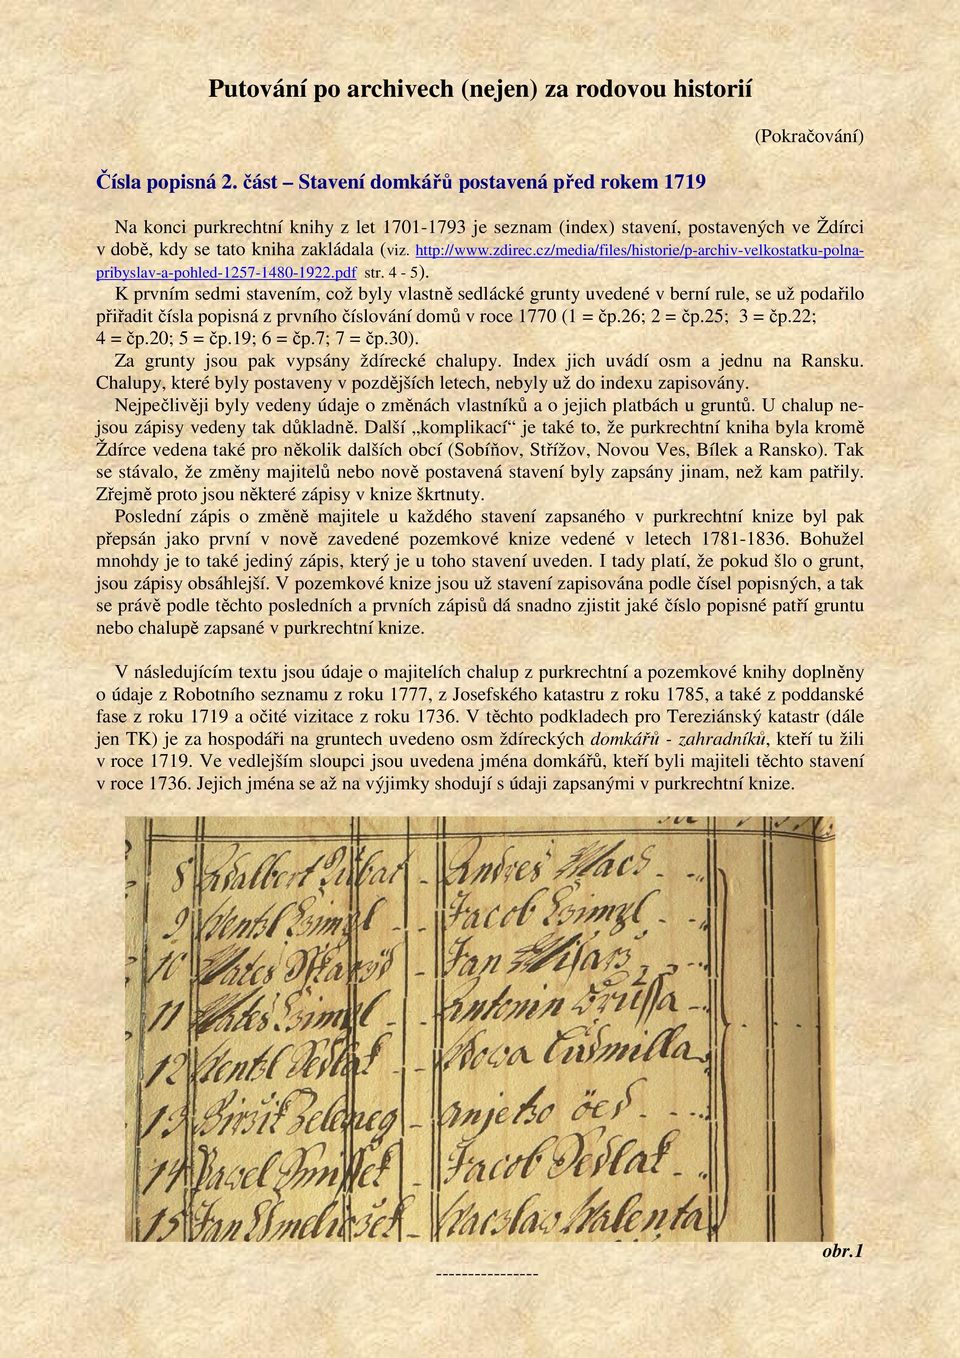 Putování po archivech (nejen) za rodovou historií
(Pokračování)
Čísla popisná 2. část – Stavení domkářů postavená před rokem 1719
Na konci purkrechtní knihy z let 1701-1793 je seznam (index) stavení, postavených ve Ždírci
v době, kdy se tato kniha zakládala (viz. http://www.zdirec.cz/media/files/historie/p-archiv-velkostatku-polna-
pribyslav-a-pohled-1257-1480-1922.pdf str. 4 - 5).
K prvním sedmi stavením, což byly vlastně sedlácké grunty uvedené v berní rule, se už podařilo
přiřadit čísla popisná z prvního číslování domů v roce 1770 (1 = čp.26; 2 = čp.25; 3 = čp.22;
4 = čp.20; 5 = čp.19; 6 = čp.7; 7 = čp.30).
Za grunty jsou pak vypsány ždírecké chalupy. Index jich uvádí osm a jednu na Ransku.
Chalupy, které byly postaveny v pozdějších letech, nebyly už do indexu zapisovány.
Nejpečlivěji byly vedeny údaje o změnách vlastníků a o jejich platbách u gruntů. U chalup ne-
jsou zápisy vedeny tak důkladně. Další „komplikací“ je také to, že purkrechtní kniha byla kromě
Ždírce vedena také pro několik dalších obcí (Sobíňov, Střížov, Novou Ves, Bílek a Ransko). Tak
se stávalo, že změny majitelů nebo nově postavená stavení byly zapsány jinam, než kam patřily.
Zřejmě proto jsou některé zápisy v knize škrtnuty.
Poslední zápis o změně majitele u každého stavení zapsaného v purkrechtní knize byl pak
přepsán jako první v nově zavedené pozemkové knize vedené v letech 1781-1836. Bohužel
mnohdy je to také jediný zápis, který je u toho stavení uveden. I tady platí, že pokud šlo o grunt,
jsou zápisy obsáhlejší. V pozemkové knize jsou už stavení zapisována podle čísel popisných, a tak
se právě podle těchto posledních a prvních zápisů dá snadno zjistit jaké číslo popisné patří gruntu
nebo chalupě zapsané v purkrechtní knize.
V následujícím textu jsou údaje o majitelích chalup z purkrechtní a pozemkové knihy doplněny
o údaje z Robotního seznamu z roku 1777, z Josefského katastru z roku 1785, a také z poddanské
fase z roku 1719 a očité vizitace z roku 1736. V těchto podkladech pro Tereziánský katastr (dále
jen TK) je za hospodáři na gruntech uvedeno osm ždíreckých domkářů - zahradníků, kteří tu žili
v roce 1719. Ve vedlejším sloupci jsou uvedena jména domkářů, kteří byli majiteli těchto stavení
v roce 1736. Jejich jména se až na výjimky shodují s údaji zapsanými v purkrechtní knize.
8 Adalbert Andres Mach
9 Wentzl Jacob
10 Mates Jan
11 Mates Antonin
12 Wentl Sedlak Wdowa Ludmilla
13 Zeleney
14 Pawel Jacob Sedlak
15 Jan Waclaw Walenta
obr.1
----------------